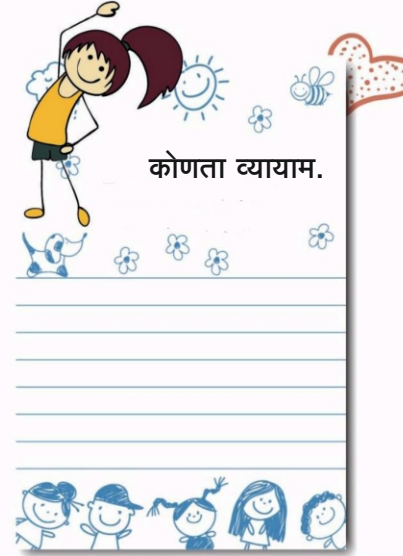 कोणता व्यायाम.